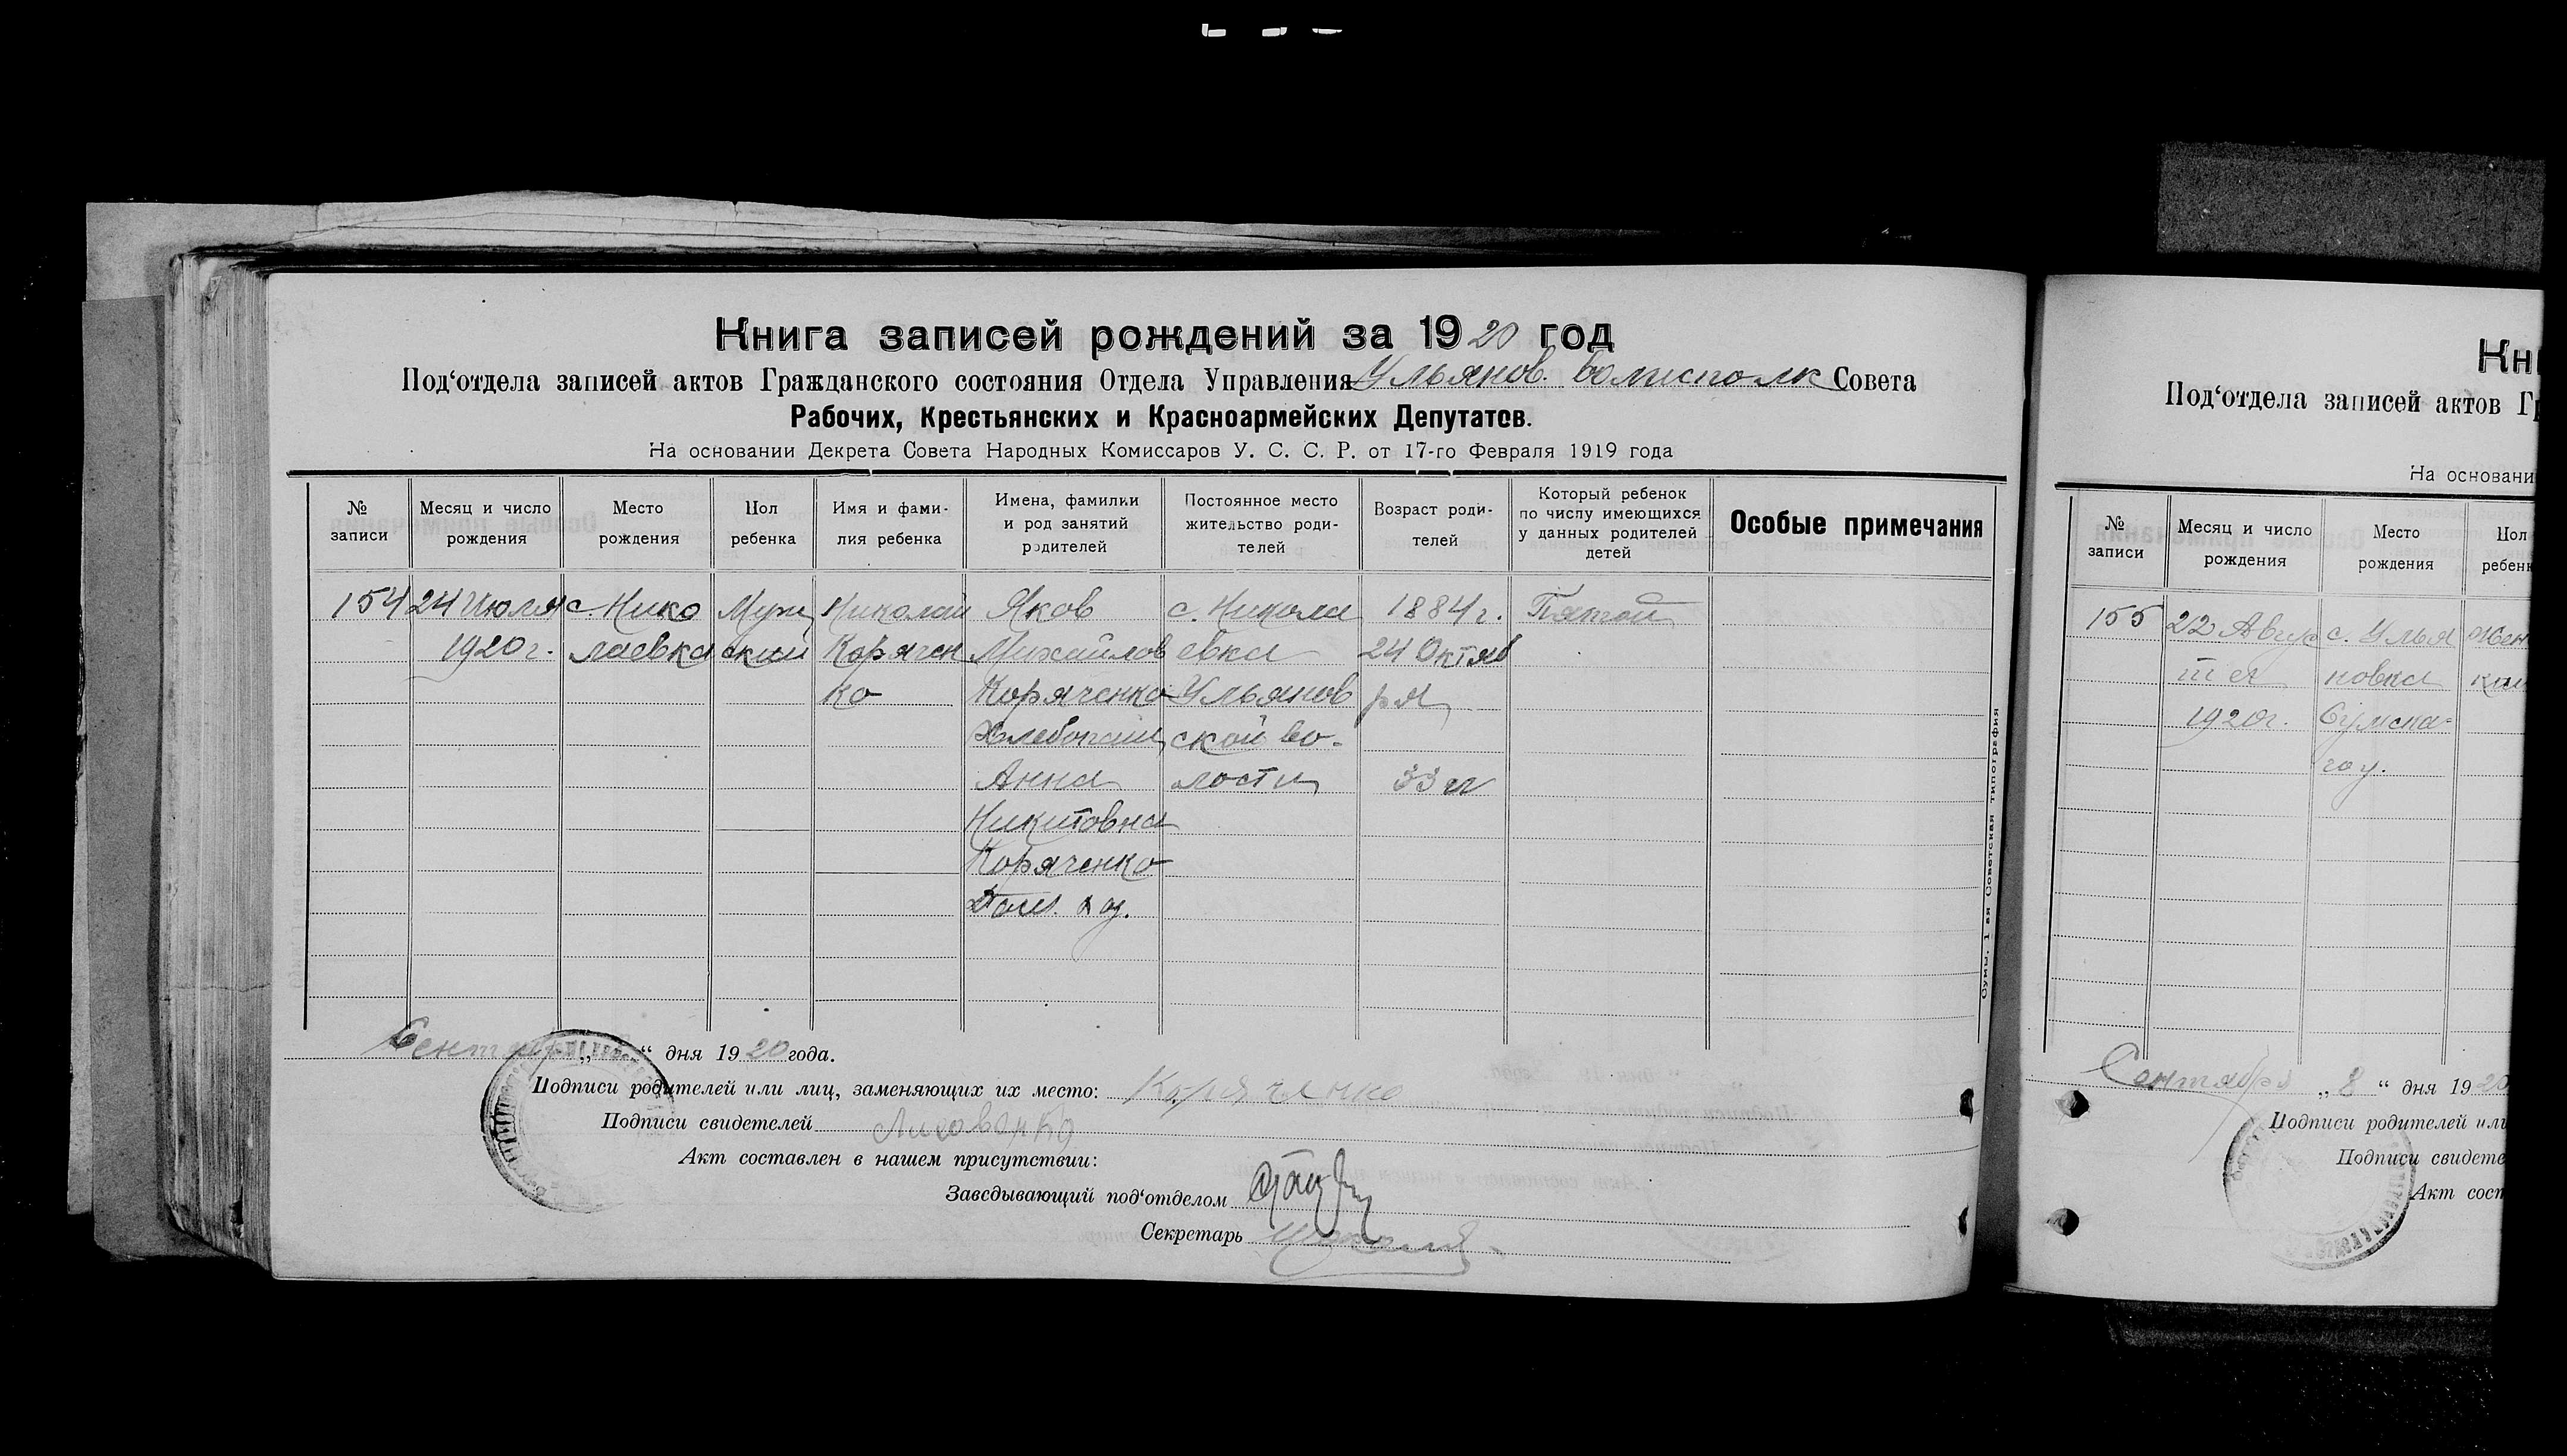 Книга записей рождений за 1920 год
Под‘отдела записей актов Гражданского состояния Отдела Управления Ульянов. Волисполк Совета
Рабочих, Крестьянских и Красноармейских Депутатов.
На основании Декрета Совета Народных Комиссаров У. С. С. Р. от 17-го Февраля 1919 года
№ записи
Месяц и число рождения
Место рождения
Пол ребенка
Имя и фами-
лия ребенка
Имена, фамилии
и род занятий
родителей
Постоянное место
жительство роди-
телей
Возраст роди-
телей
Который ребенок
по числу имеющихся
у данных родителей
детей
Особые примечания
154 24 Июля с. Нико Муж Николай Яков с. Никола 1884 г. Пятой
1920 г. лаевка ский Корячен Михайлов евка 24 Октяб
ко Коряченко Ульянов ря
Хлебопаш ской во-
Анна лости 33 г
Никитовна
Коряченко
Дом. хоз.
Сумы, 1-ая Советская типография
Сентября „ “ дня 1920 года.
Подписи родителей или лиц, заменяющих их место: Коряченко
Подписи свидетелей
Акт составлен в нашем присутствии:
Заведывающий под‘отделом
Секретарь
Кни
Под‘отдела записей актов Гр
На основани
№ записи
Месяц и число рождения
Место рождения
Пол ребенк
155 22 Авгус с. Улья Жен
та новка кий
1920 г. Сумска-
го у.
Сентября „8“ дня 1920
Подписи родителей или
Подписи свидете
Акт сост